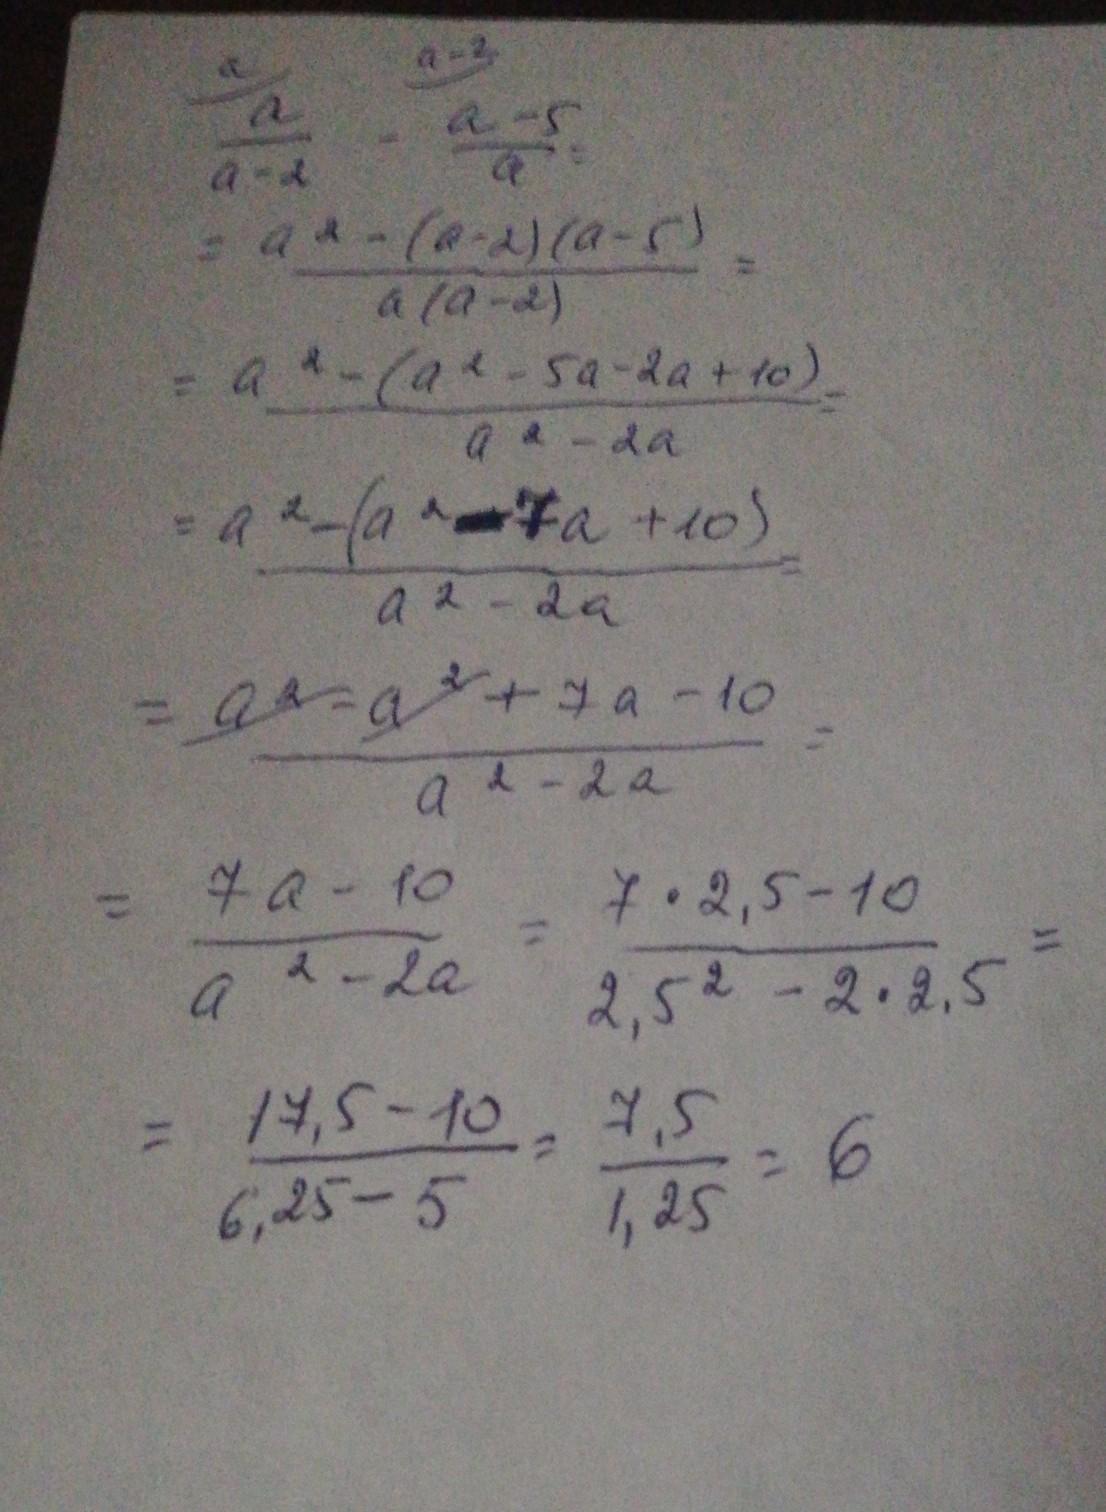 a a-2
a/(a-2) - (a-5)/a =
= (a² - (a-2)(a-5))/(a(a-2)) =
= (a² - (a² - 5a - 2a + 10))/(a² - 2a) =
= (a² - (a² - 7a + 10))/(a² - 2a) =
= (a² - a² + 7a - 10)/(a² - 2a) =
= (7a - 10)/(a² - 2a) = (7·2,5 - 10)/(2,5² - 2·2,5) =
= (17,5 - 10)/(6,25 - 5) = 7,5/1,25 = 6